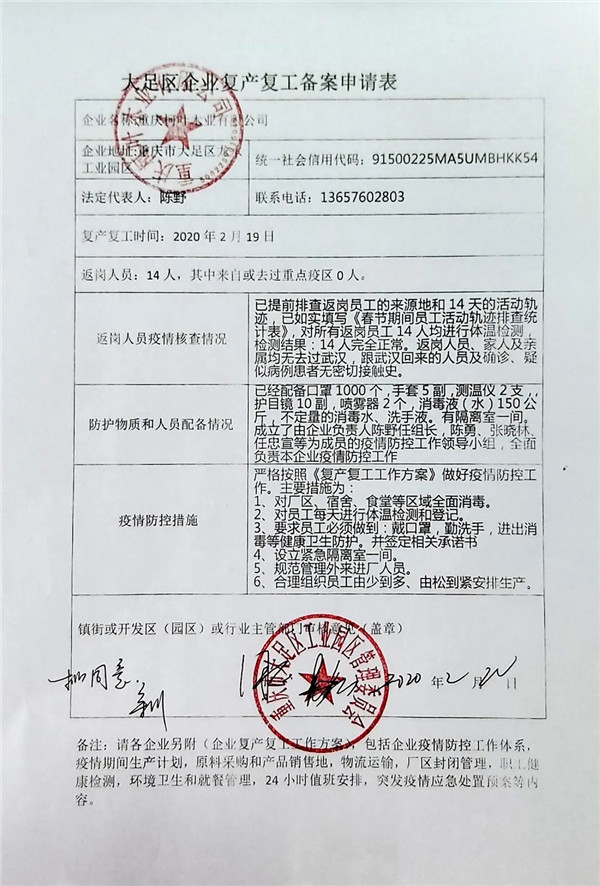 大足区企业复产复工备案申请表
企业名称:重庆柯叶木业有限公司
企业地址:重庆市大足区龙水
工业园区
统一社会信用代码：91500225MA5UMBHKK54
法定代表人：陈野
联系电话：13657602803
复产复工时间：2020 年 2 月 19 日
返岗人员：14 人，其中来自或去过重点疫区 0 人。
返岗人员疫情核查情况
已提前排查返岗员工的来源地和 14 天的活动轨
迹，已如实填写《春节期间员工活动轨迹排查统
计表》，对所有返岗员工 14 人均进行体温检测，
检测结果：14 人完全正常。返岗人员、家人及亲
属均无去过武汉，跟武汉回来的人员及确诊、疑
似病例患者无密切接触史。
防护物质和人员配备情况
已经配备口罩 1000 个，手套 5 副，测温仪 2 支，
护目镜 10 副，喷雾器 2 个，消毒液（水）150 公
斤，不定量的消毒水、洗手液。有隔离室一间。
成立了由企业负责人陈野任组长，陈勇、张晓林、
任忠宣等为成员的疫情防控工作领导小组，全面
负责本企业疫情防控工作
疫情防控措施
严格按照《复产复工工作方案》做好疫情防控工
作。主要措施为：
1、对厂区、宿舍、食堂等区域全面消毒。
2、对员工每天进行体温检测和登记。
3、要求员工必须做到：戴口罩，勤洗手，进出消
毒等健康卫生防护。并签定相关承诺书
4、设立紧急隔离室一间。
5、规范管理外来进厂人员。
6、合理组织员工由少到多、由松到紧安排生产。
镇街或开发区（园区）或行业主管部门审核意见（盖章）
同意.
重庆市大足区工业园区管理委员会
2020 年 2 月 21 日
备注：请各企业另附（企业复产复工工作方案），包括企业疫情防控工作体系，
疫情期间生产计划，原料采购和产品销售地，物流运输，厂区封闭管理，职工健
康检测，环境卫生和就餐管理，24 小时值班安排，突发疫情应急处置预案等内
容。